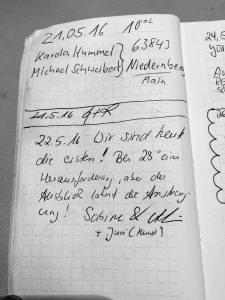 21.05.16 10⁰⁰
Karola Hummel } 63843
Michael Schweibert } Niedernberg
Main
21.5.16 G+R
22.5.16 Wir sind heut
die ersten! Bei 28° eine
Herausforderung, aber der
Ausblick lohnt die Anstreng
ung! Sabine &
+ Juri (Hund)
24,5